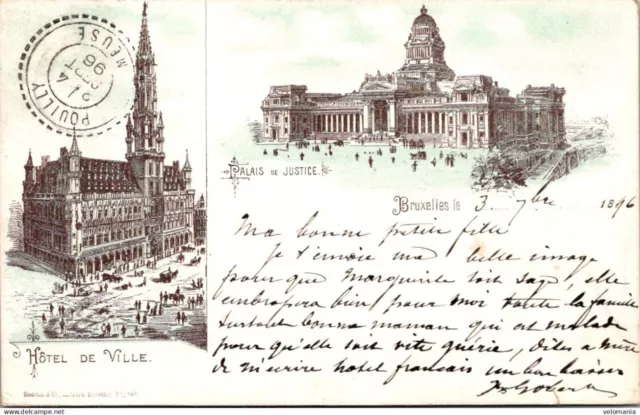 POUILLY
21 4
SEPT
96
MEUSE
PALAIS DE JUSTICE.
Bruxelles le 3 7bre 1896
Ma bonne petite fille
je t'envoie une belle image
pour que Marguerite soit sage, elle
embrassera bien pour moi toute la famille
surtout bonne maman qui est malade
pour qu'elle soit vite guérie, dites a mère
de m'écrire hotel français un bon baiser
HÔTEL DE VILLE.
delcampe.net
velomania